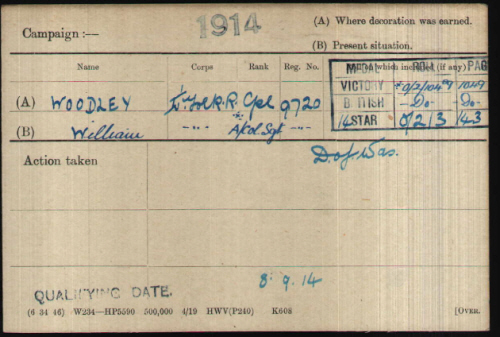 Campaign :— 1914 (A) Where decoration was earned.
(B) Present situation.
Name Corps Rank Reg. No. MEDAL ROLL PAG
which inc (if any)
VICTORY 0/2/104 1049
(A) WOODLEY R.R. Cpl 9720 BRITISH -Do- -Do-
(B) William -"- A/Col Sgt -"- 14 STAR 0/2/3 143
Action taken D. of Was.
8. 9. 14
QUALIFYING DATE.
(6 34 46) W234—HP5590 500,000 4/19 HWV(P240) K608 [OVER.